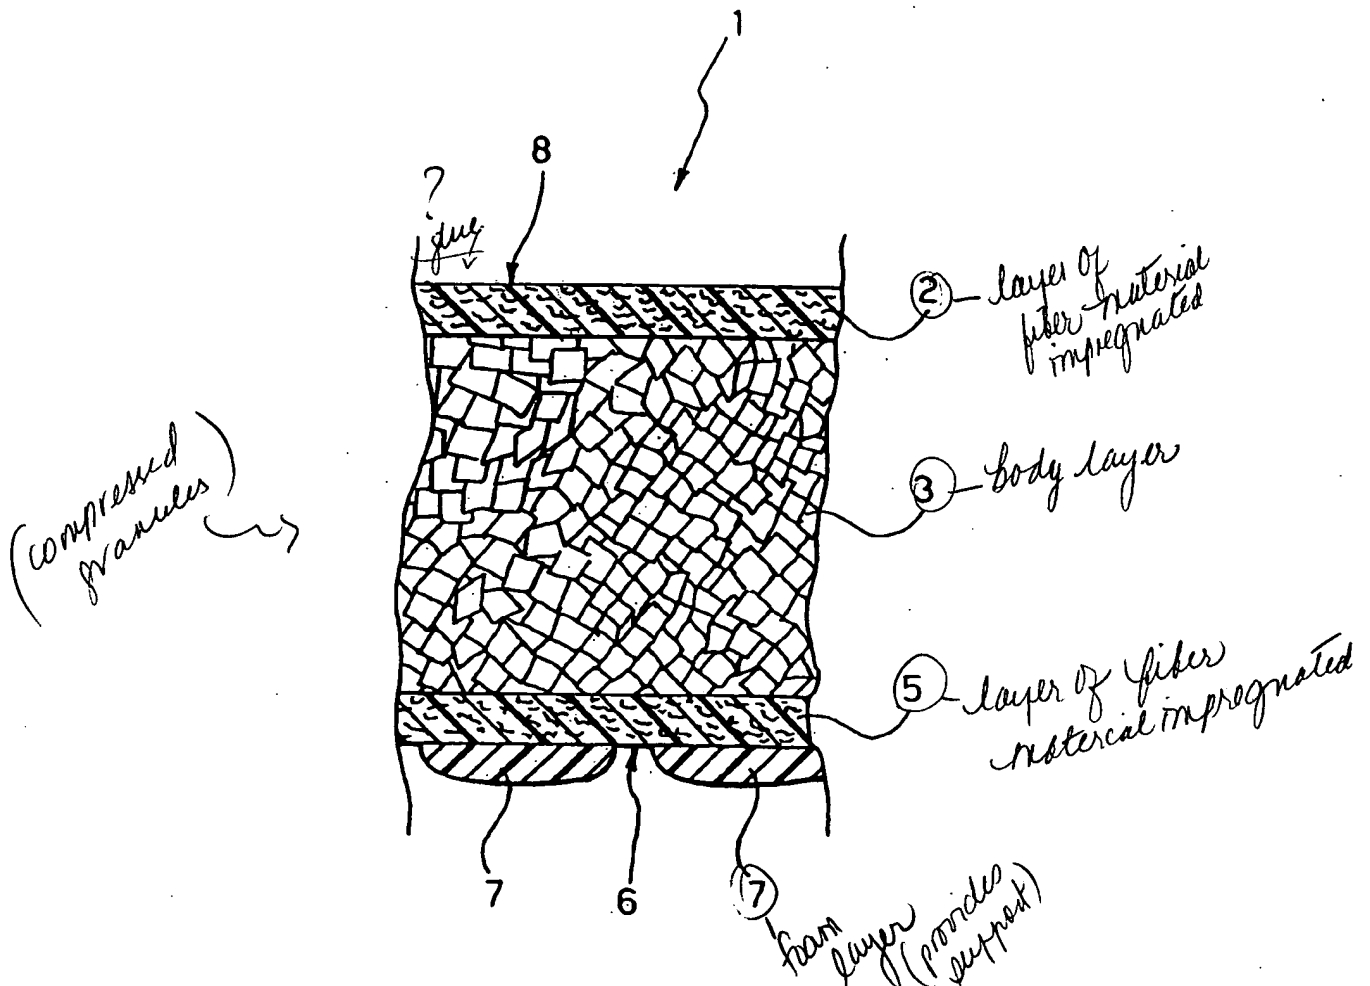 1
8
?
glue
2 - layer of
fiber material
impregnated
(compressed
granules)
3 - body layer
5 - layer of fiber
material impregnated
7
6
7
foam
layer
(provides
support)